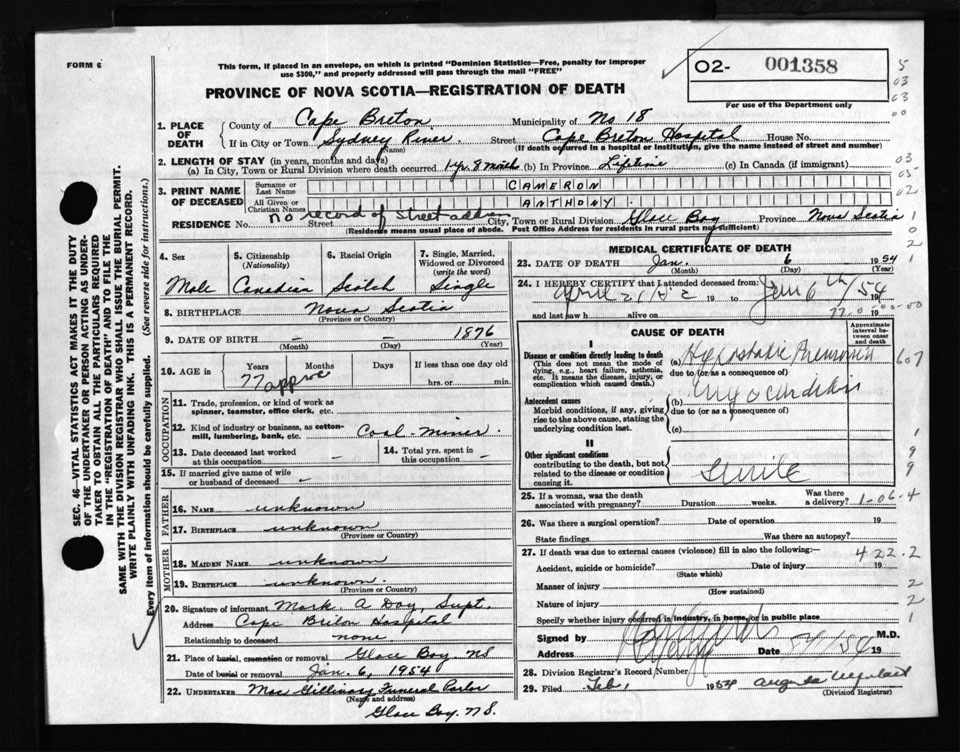 FORM 6
This form, if placed in an envelope, on which is printed "Dominion Statistics—Free, penalty for improper
use $300," and properly addressed will pass through the mail "FREE"
O2- 001358
For use of the Department only
PROVINCE OF NOVA SCOTIA—REGISTRATION OF DEATH
5
03
03
00
03
05
02
1
0
2
1
1. PLACE OF DEATH
County of Cape Breton Municipality of No 18
If in City or Town Sydney River Street Cape Breton Hospital House No.
(Name) (If death occurred in hospital or institution, give the name instead of street and number)
2. LENGTH OF STAY (in years, months and days)
(a) In City, Town or Rural Division where death occurred 1 yr. 8 months (b) In Province Lifetime (c) In Canada (if immigrant)
3. PRINT NAME OF DECEASED
Surname or Last Name CAMERON
All Given or Christian Names ANTHONY.
RESIDENCE No. no record of Street address Street City, Town or Rural Division Glace Bay Province Nova Scotia
(Residence means usual place of abode. Post Office Address for residents in rural parts not sufficient)
4. Sex
Male
5. Citizenship
(Nationality)
Canadian
6. Racial Origin
Scotch
7. Single, Married, Widowed or Divorced
(write the word)
Single
8. BIRTHPLACE Nova Scotia
(Province or Country)
9. DATE OF BIRTH – – 1876
(Month) (Day) (Year)
10. AGE in Years Months Days If less than one day old
77 approx hrs. or min.
OCCUPATION
11. Trade, profession, or kind of work as
spinner, teamster, office clerk, etc.
12. Kind of industry or business, as cotton-
mill, lumbering, bank, etc. Coal-miner.
13. Date deceased last worked
at this occupation –
14. Total yrs. spent in
this occupation –
15. If married give name of wife
or husband of deceased –
FATHER
16. NAME unknown
17. BIRTHPLACE unknown
(Province or Country)
MOTHER
18. MAIDEN NAME unknown
19. BIRTHPLACE unknown.
(Province or Country)
20. Signature of informant Mark. A Day, Supt.
Address Cape Breton Hospital
Relationship to deceased none
21. Place of burial, cremation or removal Glace Bay NS
Date of burial or removal Jan. 6, 1954
22. UNDERTAKER Mac Gillivary Funeral Parlor
(Name and address)
Glace Bay. NS.
MEDICAL CERTIFICATE OF DEATH
23. DATE OF DEATH Jan. 6 1954
(Month) (Day) (Year)
24. I HEREBY CERTIFY that I attended deceased from:
April 19 to Jan 6th/54 19
and last saw h alive on 19
CAUSE OF DEATH
Approximate interval between onset and death
I
Disease or condition directly leading to death
(This does not mean the mode of
dying, e.g., heart failure, asthenia,
etc. It means the disease, injury, or
complication which caused death.)
(a) Hypostatic Pneumonia
due to (or as a consequence of)
607
Antecedent causes
Morbid conditions, if any, giving
rise to the above cause, stating the
underlying condition last.
Myocarditis
(b)
due to (or as a consequence of)
(c)
II
Other significant conditions
contributing to the death, but not
related to the disease or condition
causing it.
Senile
1
9
9
25. If a woman, was the death
associated with pregnancy? Duration weeks. Was there a delivery? 1-06-4
26. Was there a surgical operation? Date of operation 19
State findings Was there an autopsy?
27. If death was due to external causes (violence) fill in also the following:— 422.2
Accident, suicide or homicide? Date of injury 19
(State which)
Manner of injury 2
(How sustained)
Nature of injury 2
Specify whether injury occurred in industry, in home, or in public place 1
Signed by M.D.
Address Date 19
28. Division Registrar's Record Number
29. Filed Feb, 1954
(Division Registrar)
SEC. 46—VITAL STATISTICS ACT MAKES IT THE DUTY
OF THE UNDERTAKER OR PERSON ACTING AS UNDER-
TAKER TO OBTAIN ALL THE PARTICULARS REQUIRED
IN THE "REGISTRATION OF DEATH" AND TO FILE THE
SAME WITH THE DIVISION REGISTRAR WHO SHALL ISSUE THE BURIAL PERMIT.
WRITE PLAINLY WITH UNFADING INK. THIS IS A PERMANENT RECORD.
Every item of information should be carefully supplied. (See reverse side for instructions.)